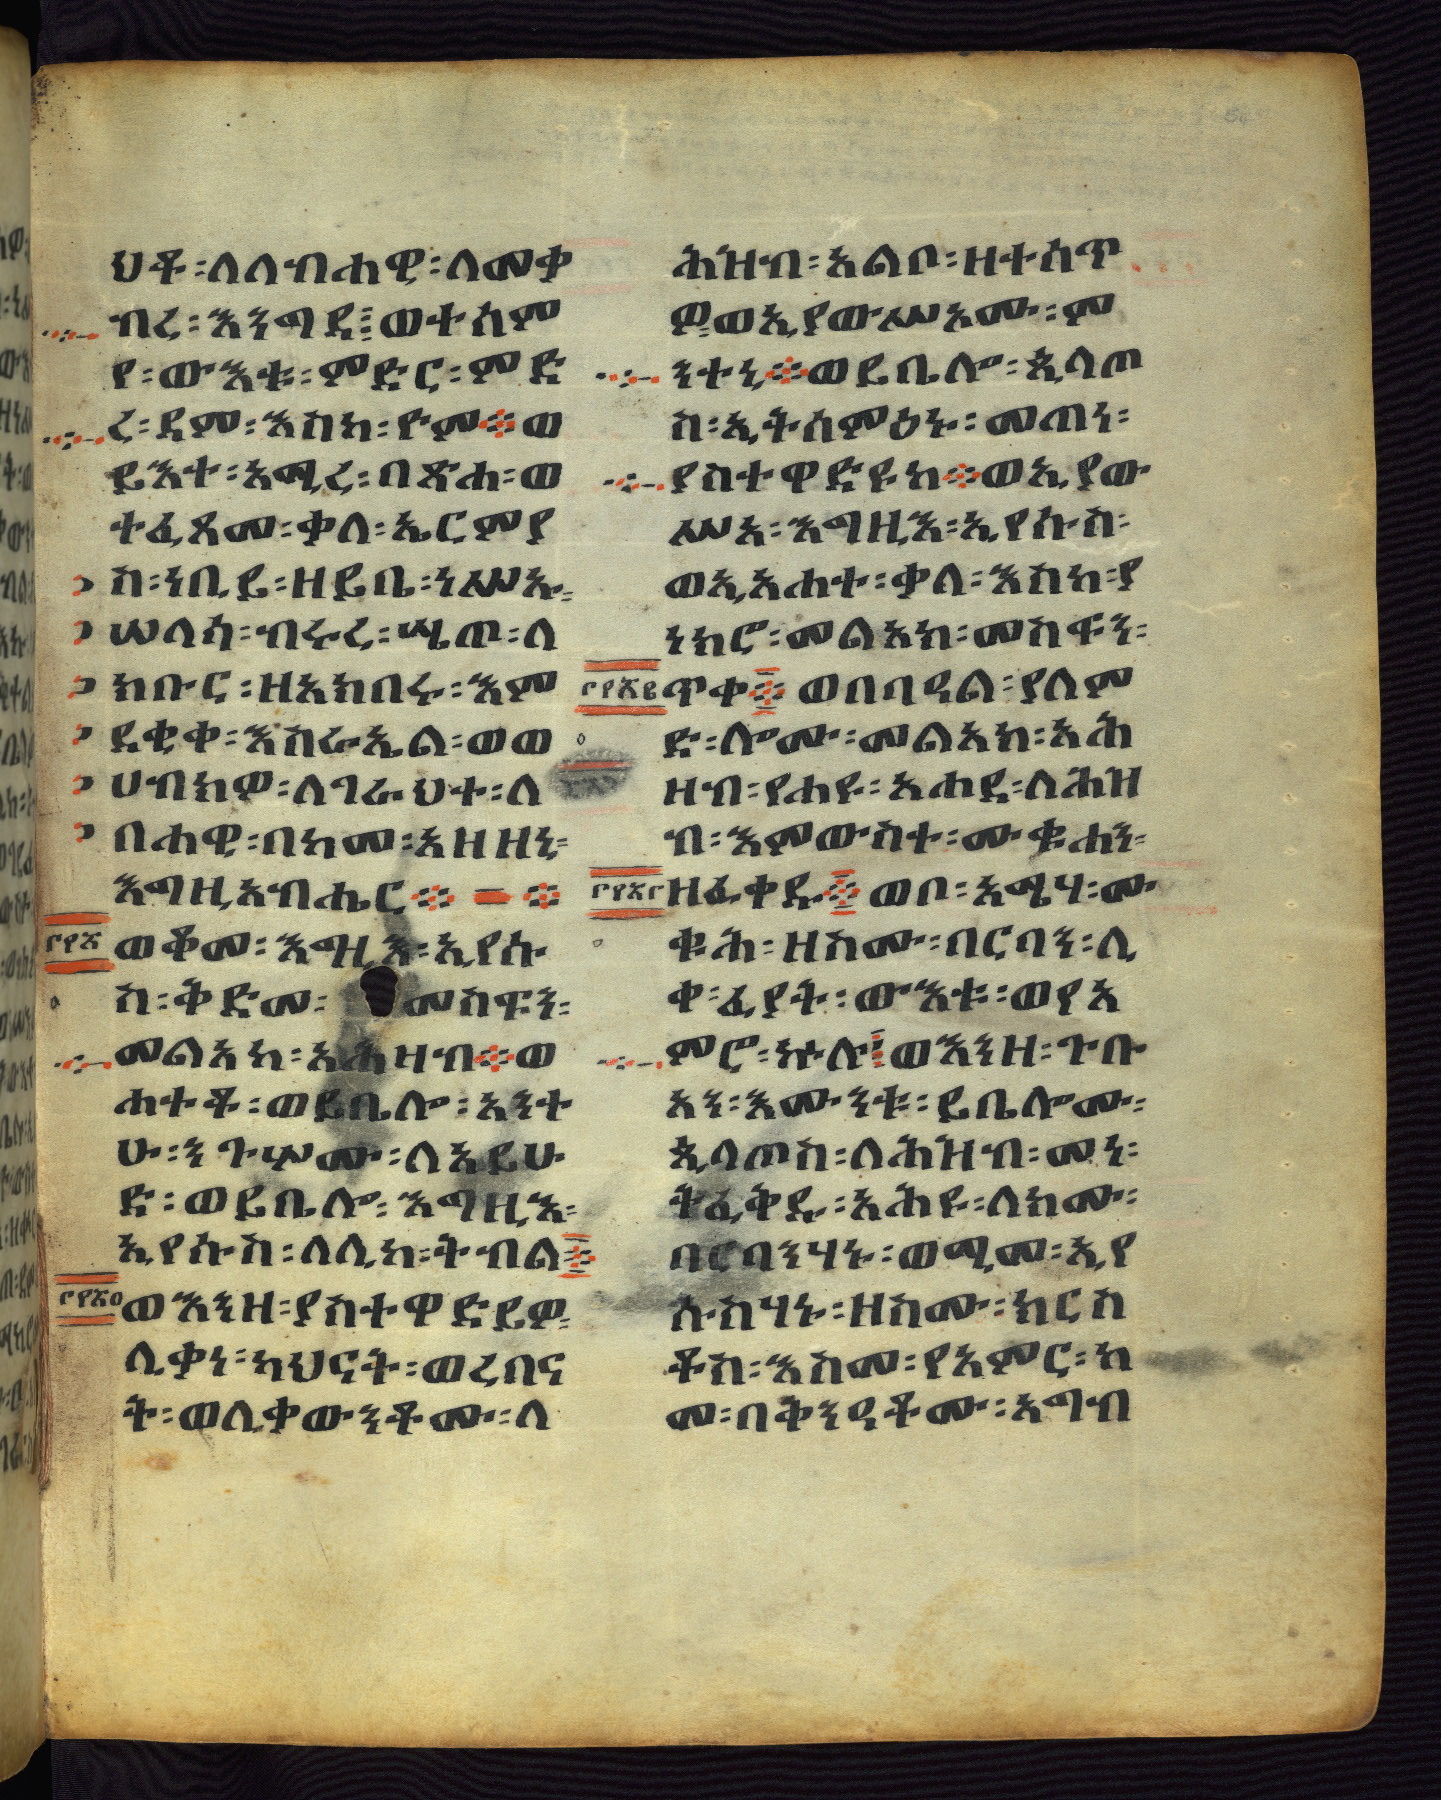 ህቶ፡ለለብሐዊ፡ለመቃ
ብረ፡እንግዳ፤ወተሰም
የ፡ውእቱ፡ምድር፡ምድ
ረ፡ደም፡እስከ፡ዮም።ወ
ይእተ፡አሚረ፡በጽሐ፡ወ
ተፈጸመ፡ቃለ፡ኤርምያ
ስ፡ነቢይ፡ዘይቤ፡ነሥኡ፡
ሠላሳ፡ብሩረ፡ሤጦ፡ለ
ክቡር፡ዘአክበሩ፡እም
ደቂቀ፡እስራኤል፡ወወ
ሀብክዎ፡ለገራህተ፡ለ
በሐዊ፡በከመ፡አዘዘኒ፡
እግዚአብሔር።
፫፻፳
ወቆመ፡እግዚእ፡ኢየሱ
ስ፡ቅድመ፡መስፍን፡
መልአከ፡አሕዛብ።ወ
ሐተቶ፡ወይቤሎ፡አንተ
ሁ፡ንጉሦሙ፡ለአይሁ
ድ፡ወይቤሎ፡እግዚእ፡
ኢየሱስ፡ለሊከ፡ትብል፤
ወእንዘ፡ያስተዋድይዎ፡
ሊቃነ፡ካህናት፡ወረበና
ት፡ወሊቃውንቶሙ፡ለ
ሕዝብ፡አልቦ፡ዘተሰጥ
ዎ፡ወኢያውሥአሙ፡ም
ንተኒ።ወይቤሎ፡ጲላጦ
ስ፡ኢትሰምዕኑ፡መጠነ፡
ያስተዋድዩከ።ወኢያው
ሥአ፡እግዚእ፡ኢየሱስ፡
ወኢአሐተ፡ቃለ፡እስከ፡ያ
ነክሮ፡መልአክ፡መስፍን፡
ጥቀ፤ወበበዓል፡ያለም
ድ፡ሎሙ፡መልአከ፡አሕ
ዛብ፡የሐዩ፡አሐደ፡ለሕዝ
ብ፡እምውስተ፡ሙቁሐን፡
ዘፈቀዱ፤ወቦ፡አሜሃ፡ሙ
ቁሕ፡ዘስሙ፡በርባን፡ሊ
ቀ፡ፈያት፡ውእቱ፡ወየአ
ምሮ፡ኵሉ፤ወእንዘ፡ጉቡ
አን፡እሙንቱ፡ይቤሎሙ፡
ጲላጦስ፡ለሕዝብ፡መነ፡
ትፈቅዱ፡አሕዩ፡ለክሙ፡
በርባንሃኑ፡ወሚመ፡ኢየ
ሱስሃኑ፡ዘስሙ፡ክርስ
ቶስ፡እስመ፡የአምር፡ከ
መ፡በቅንዓቶሙ፡አግብ